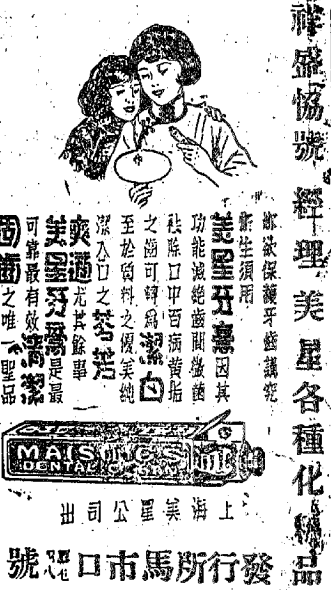 祥盛協號 經理美星各種化粧品
你欲保護牙齒講究
衛生須用
美星牙膏因其
功能滅絕齒間微菌
袪除口中百病黃垢
之齒可轉為潔白
至於質料之優美純
潔入口之芬芳
爽適尤其餘事
美星牙膏是最
可靠最有效清潔
固齒之唯一聖品
MAISING'S
DENTAL
上海美星公司出
發行所馬市口
號